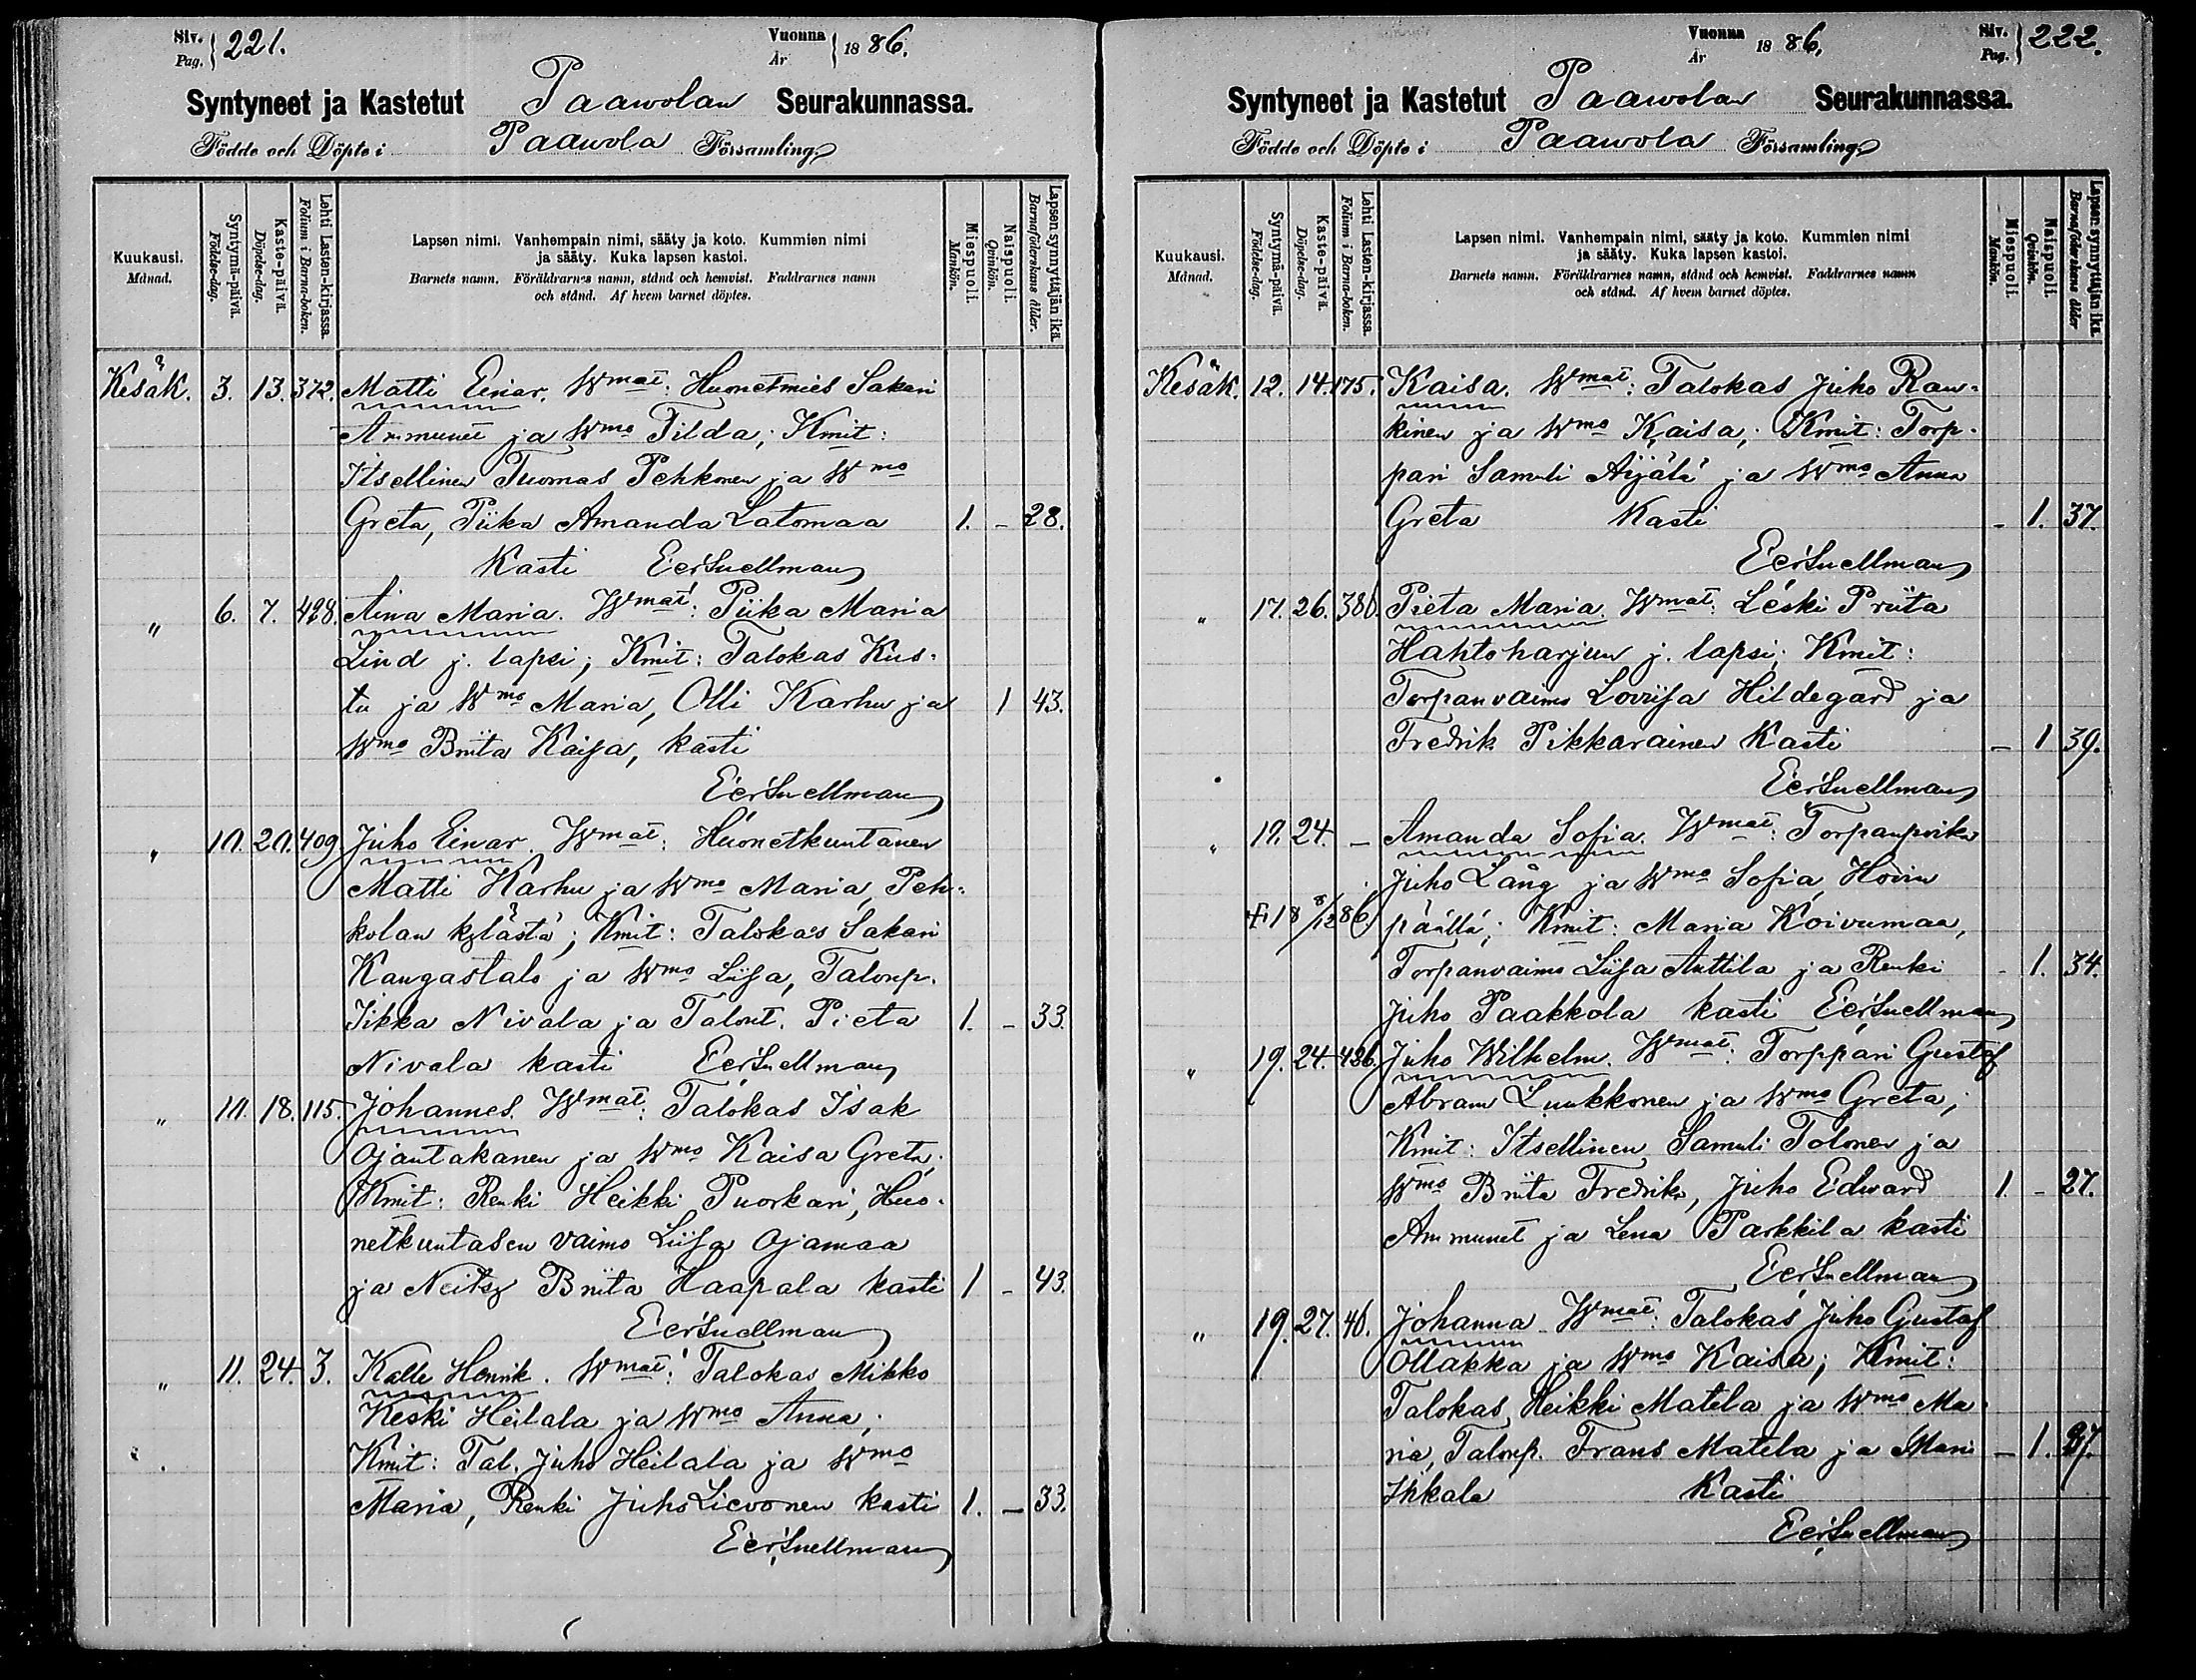 Siv. Pag. 221.
Vuonna År 1886.
Syntyneet ja Kastetut Paawolan Seurakunnassa.
Födde och Döpte i Paawola Församling
Kuukausi. Månad.
Syntymä-päivä. Födelse-dag.
Kaste-päivä. Döpelse-dag.
Lehti Lasten-kirjassa. Folium i Barna-boken.
Lapsen nimi. Vanhempain nimi, sääty ja koto. Kummien nimi
ja sääty. Kuka lapsen kastoi.
Barnets namn. Föräldrarnes namn, stånd och hemvist. Faddrarnes namn
och stånd. Af hvem barnet döptes.
Miespuoli. Mankön.
Naispuoli. Qvinkön.
Lapsen synnyttäjän ikä. Barnaföderskans ålder.
Kesäk. 3. 13. 372. Matti Einar. Wmat: Huonetmies Sakari
Ammunet ja Wmo Tilda; Kmit:
Itsellinen Tuomas Pehkonen ja Wmo
Greta, Piika Amanda Latomaa 1. - 28.
Kasti EerSnellman
" 6. 7. 428. Aina Maria. Wmat: Piika Maria
Lind j. lapsi; Kmit: Talokas Kus-
tu ja Wmo Maria, Olli Karhu ja 1 43.
Wmo Briita Kaisa, kasti
EerSnellman
" 10. 20. 409. Juho Einar. Wmat: Huonetkuntanen
Matti Karhu ja Wmo Maria, Peh-
kolan kylästä; Kmit: Talokas Sakari
Kangastalo ja Wmo Liisa, Talonp.
Iikka Nivala ja Talont. Pieta 1. - 33.
Nivala kasti EerSnellman
" 10. 18. 115. Johannes. Wmat: Talokas Isak
Ojantakanen ja Wmo Kaisa Greta;
Kmit: Renki Heikki Puorkari, Huo-
netkuntasen vaimo Liisa Ojamaa
ja Neitsy Briita Haapala kasti 1 - 43.
EerSnellman
" 11. 24. 3. Kalle Henrik. Wmat: Talokas Mikko
Keski Heilala ja Wmo Anna;
Kmit: Tal. Juho Heilala ja Wmo
Maria, Renki Juho Lievonen kasti 1. - 33.
EerSnellman
Vuonna År 1886,
Siv. Pag. 222.
Syntyneet ja Kastetut Paawolan Seurakunnassa.
Födde och Döpte i Paawola Församling
Kuukausi. Månad.
Syntymä-päivä. Födelse-dag.
Kaste-päivä. Döpelse-dag.
Lehti Lasten-kirjassa. Folium i Barna-boken.
Lapsen nimi. Vanhempain nimi, sääty ja koto. Kummien nimi
ja sääty. Kuka lapsen kastoi.
Barnets namn. Föräldrarnes namn, stånd och hemvist. Faddrarnes namn
och stånd. Af hvem barnet döptes.
Miespuoli. Mankön.
Naispuoli. Qvinkön.
Lapsen synnyttäjän ikä. Barnaföderskans ålder
Kesäk. 12. 14. 175. Kaisa. Wmat: Talokas Juho Rau-
kinen ja Wmo Kaisa; Kmit: Torp-
pari Samuli Äijälä ja Wmo Anna
Greta Kasti - 1. 37.
EerSnellman
" 17. 26. 386. Pieta Maria. Wmat: Leski Priita
Hahtoharjun j. lapsi; Kmit:
Torpanvaimo Loviisa Hildegard ja
Fredrik Pikkarainen Kasti - 1 39.
EerSnellman
" 19. 24. - Amanda Sofia. Wmat: Torpanpoika
Juho Lång ja Wmo Sofia, Hovin
päällä; Kmit: Maria Koivumaa,
Torpanvaimo Liisa Anttila ja Renki - 1. 34.
Juho Paakkola kasti EerSnellman
" 19. 24. 436. Juho Wilhelm. Wmat: Torppari Gustaf
Abram Luukkonen ja Wmo Greta;
Kmit: Itsellinen Samuli Tolonen ja
Wmo Briita Fredrika, Juho Edward 1. - 27.
Ammunet ja Lena Parkkila kasti
EerSnellman
" 19. 27. 46. Johanna Wmat: Talokas Juho Gustaf
Ollakka ja Wmo Kaisa; Kmit:
Talokas Heikki Matela ja Wmo Ma-
ria, Talonp. Frans Matela ja Mari - 1. 27.
Ihkala Kasti
EerSnellman